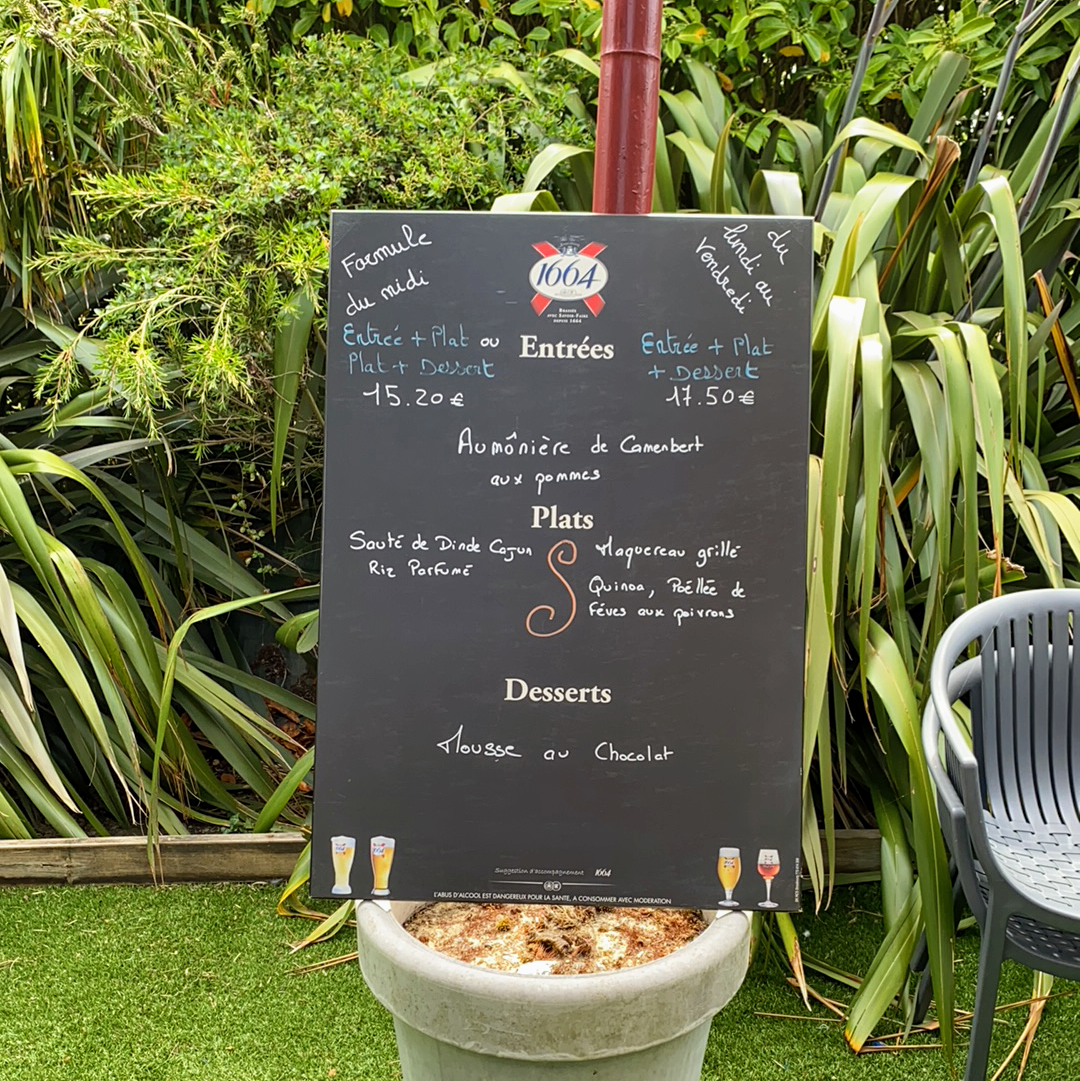 Formule
du midi
1664
BRASSÉE
AVEC SAVOIR-FAIRE
DEPUIS 1664
du
lundi au
Vendredi
Entrée + Plat ou
Plat + Dessert
15.20€
Entrées
Entrée + Plat
+ Dessert
17.50€
Aumônière de Camenbert
aux pommes
Plats
Sauté de Dinde Cajun
Riz Parfumé
Maquereau grillé
Quinoa, Poêllée de
Féves aux poivrons
Desserts
Mousse au Chocolat
Suggestion d'accompagnement 1664
L'ABUS D'ALCOOL EST DANGEREUX POUR LA SANTE, A CONSOMMER AVEC MODERATION